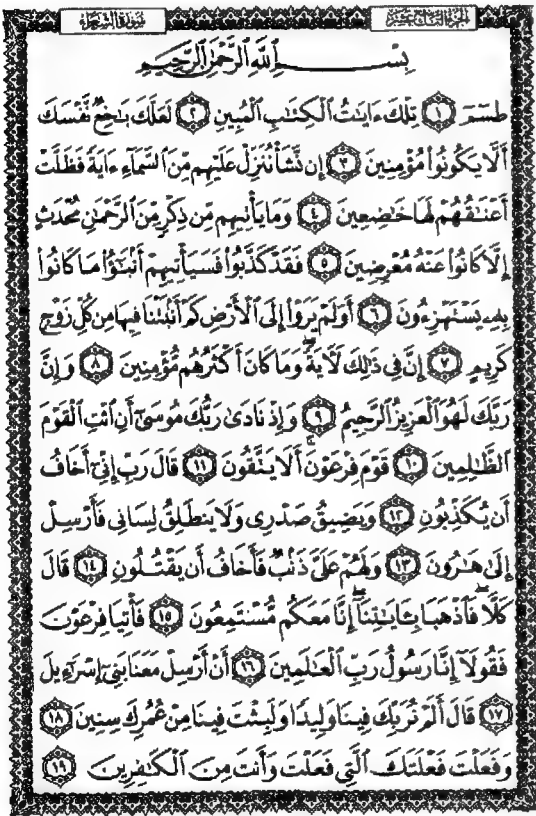 الجزء التاسع عشر سورة الشعراء
بِسْمِ ٱللَّهِ ٱلرَّحْمَٰنِ ٱلرَّحِيمِ
طسٓمٓ ١ تِلْكَ ءَايَٰتُ ٱلْكِتَٰبِ ٱلْمُبِينِ ٢ لَعَلَّكَ بَٰخِعٌ نَّفْسَكَ
أَلَّا يَكُونُوا۟ مُؤْمِنِينَ ٣ إِن نَّشَأْ نُنَزِّلْ عَلَيْهِم مِّنَ ٱلسَّمَآءِ ءَايَةً فَظَلَّتْ
أَعْنَٰقُهُمْ لَهَا خَٰضِعِينَ ٤ وَمَا يَأْتِيهِم مِّن ذِكْرٍ مِّنَ ٱلرَّحْمَٰنِ مُحْدَثٍ
إِلَّا كَانُوا۟ عَنْهُ مُعْرِضِينَ ٥ فَقَدْ كَذَّبُوا۟ فَسَيَأْتِيهِمْ أَنۢبَٰٓؤُا۟ مَا كَانُوا۟
بِهِۦ يَسْتَهْزِءُونَ ٦ أَوَلَمْ يَرَوْا۟ إِلَى ٱلْأَرْضِ كَمْ أَنۢبَتْنَا فِيهَا مِن كُلِّ زَوْجٍ
كَرِيمٍ ٧ إِنَّ فِى ذَٰلِكَ لَءَايَةً وَمَا كَانَ أَكْثَرُهُم مُّؤْمِنِينَ ٨ وَإِنَّ
رَبَّكَ لَهُوَ ٱلْعَزِيزُ ٱلرَّحِيمُ ٩ وَإِذْ نَادَىٰ رَبُّكَ مُوسَىٰٓ أَنِ ٱئْتِ ٱلْقَوْمَ
ٱلظَّٰلِمِينَ ١٠ قَوْمَ فِرْعَوْنَ أَلَا يَتَّقُونَ ١١ قَالَ رَبِّ إِنِّىٓ أَخَافُ
أَن يُكَذِّبُونِ ١٢ وَيَضِيقُ صَدْرِى وَلَا يَنطَلِقُ لِسَانِى فَأَرْسِلْ
إِلَىٰ هَٰرُونَ ١٣ وَلَهُمْ عَلَىَّ ذَنۢبٌ فَأَخَافُ أَن يَقْتُلُونِ ١٤ قَالَ
كَلَّا فَٱذْهَبَا بِـَٔايَٰتِنَآ إِنَّا مَعَكُم مُّسْتَمِعُونَ ١٥ فَأْتِيَا فِرْعَوْنَ
فَقُولَآ إِنَّا رَسُولُ رَبِّ ٱلْعَٰلَمِينَ ١٦ أَنْ أَرْسِلْ مَعَنَا بَنِىٓ إِسْرَٰٓءِيلَ
١٧ قَالَ أَلَمْ نُرَبِّكَ فِينَا وَلِيدًا وَلَبِثْتَ فِينَا مِنْ عُمُرِكَ سِنِينَ ١٨
وَفَعَلْتَ فَعْلَتَكَ ٱلَّتِى فَعَلْتَ وَأَنتَ مِنَ ٱلْكَٰفِرِينَ ١٩